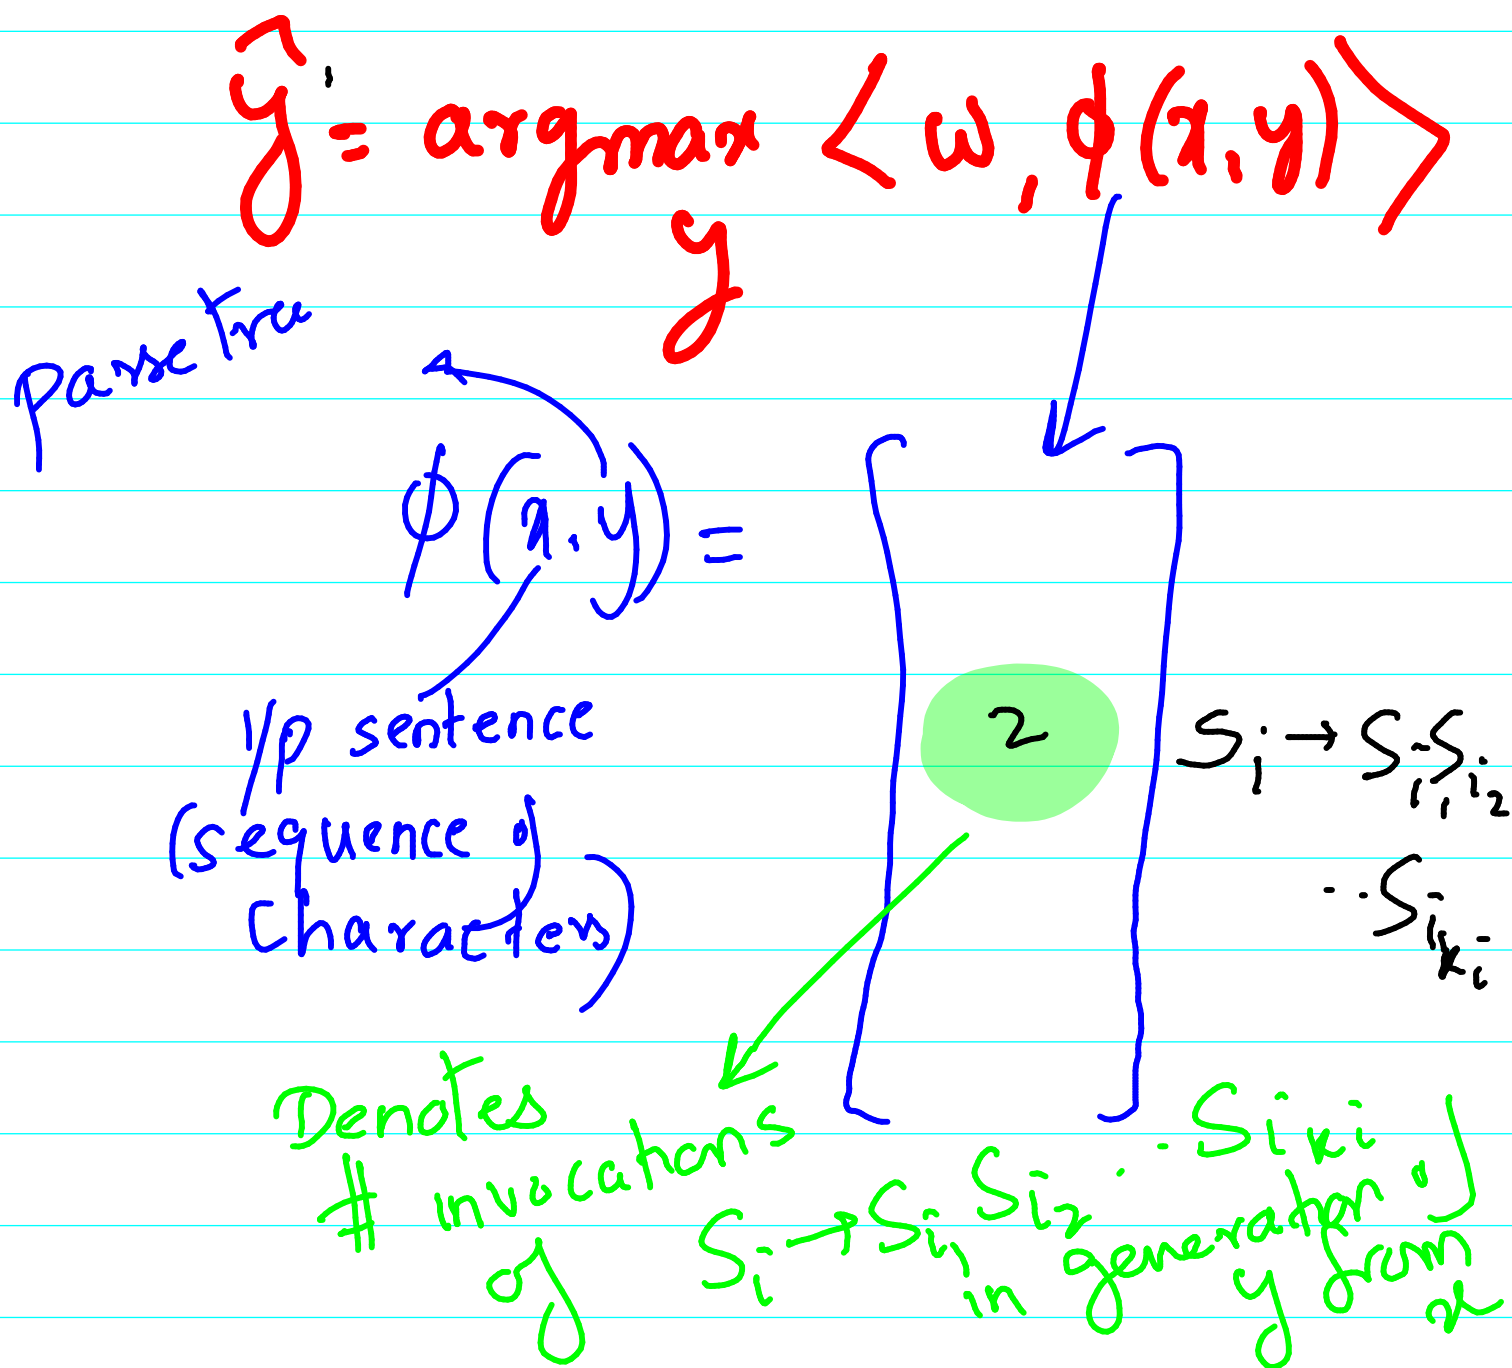 ŷ = argmax ⟨w, φ(x,y)⟩
y
parse tree
φ(x,y) =
I/p sentence
(sequence of
characters)
2
S_i → S_{i_1} S_{i_2}
.. S_{i_{k_i}}
Denotes
# invocations
of S_i → S_{i_1} S_{i_2} .. S_{i_{k_i}}
in generation of
y from x